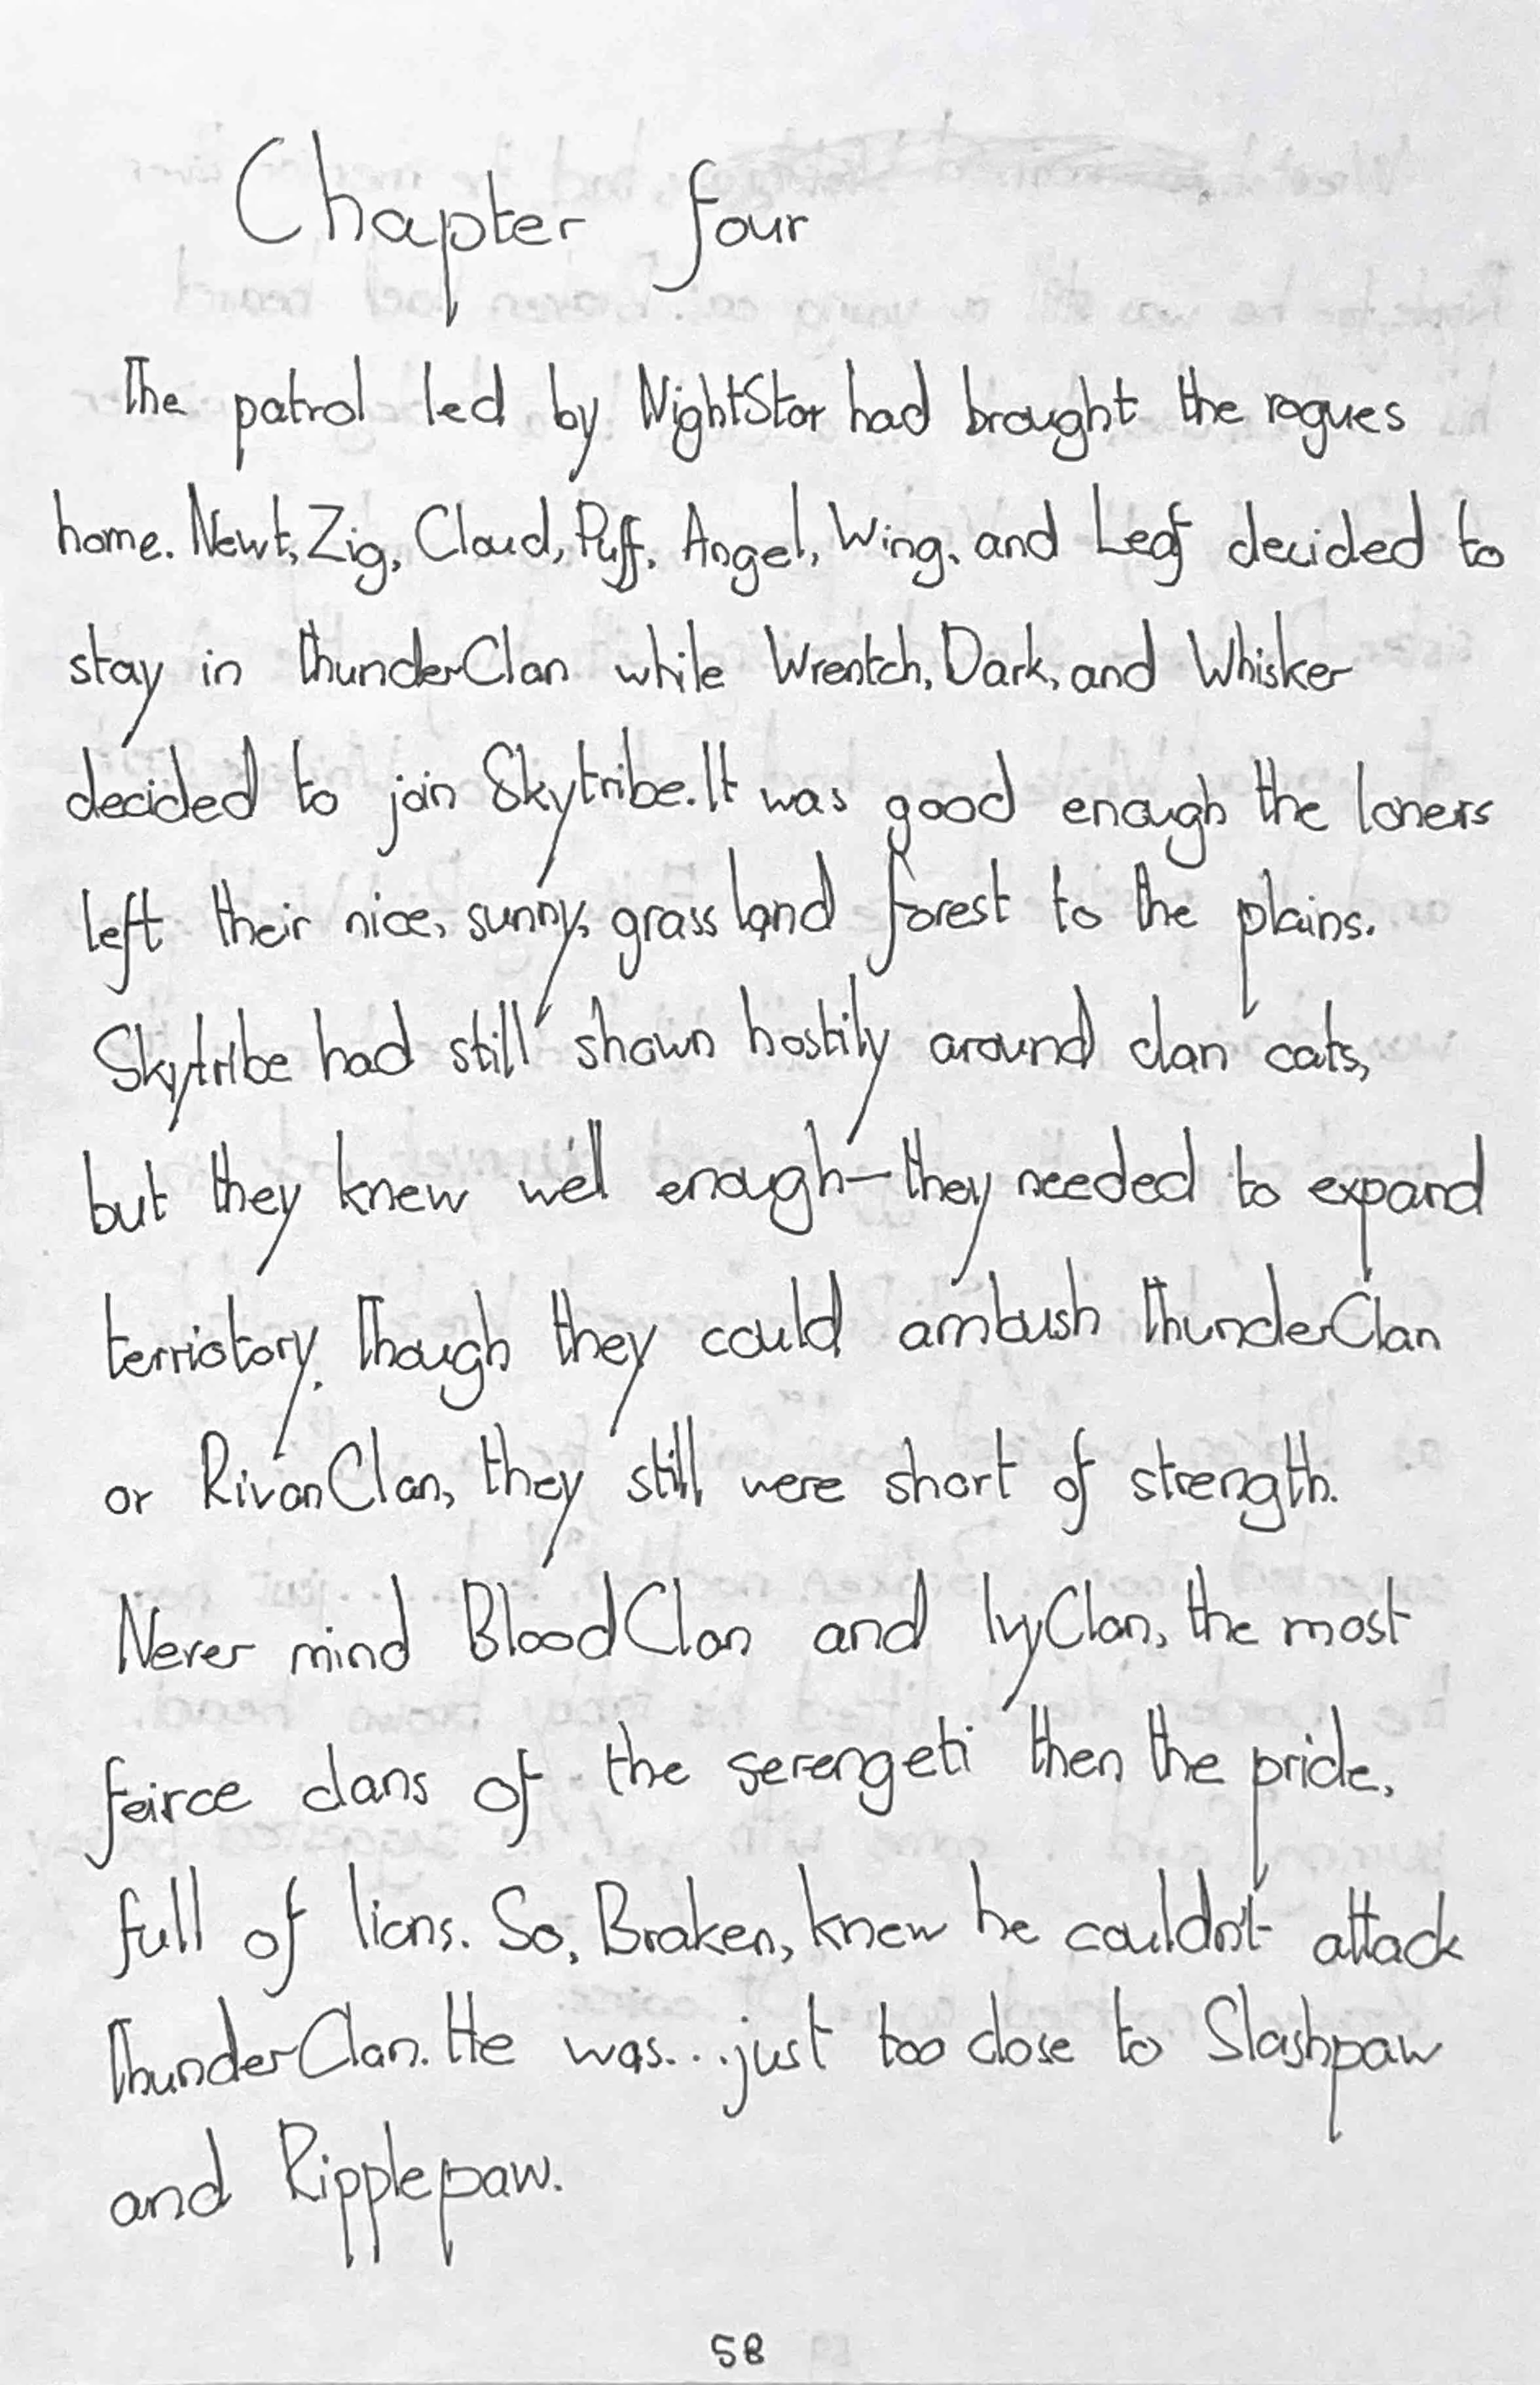 Chapter four
The patrol led by NightStar had brought the rogues
home. Newt, Zig, Cloud, Puff, Angel, Wing, and Leaf decided to
stay in ThunderClan while Wrentch, Dark, and Whisker
decided to join Skytribe. It was good enough the loners
left their nice, sunny, grass land forest to the plains.
Skytribe had still shown hostily around clan cats,
but they knew well enough—they needed to expand
terriotory. Though they could ambush ThunderClan
or RivanClan, they still were short of strength.
Never mind BloodClan and IvyClan, the most
feirce clans of the serengeti then the pride,
full of lions. So, Braken, knew he couldn't attack
ThunderClan. He was...just too close to Slashpaw
and Ripplepaw.
58